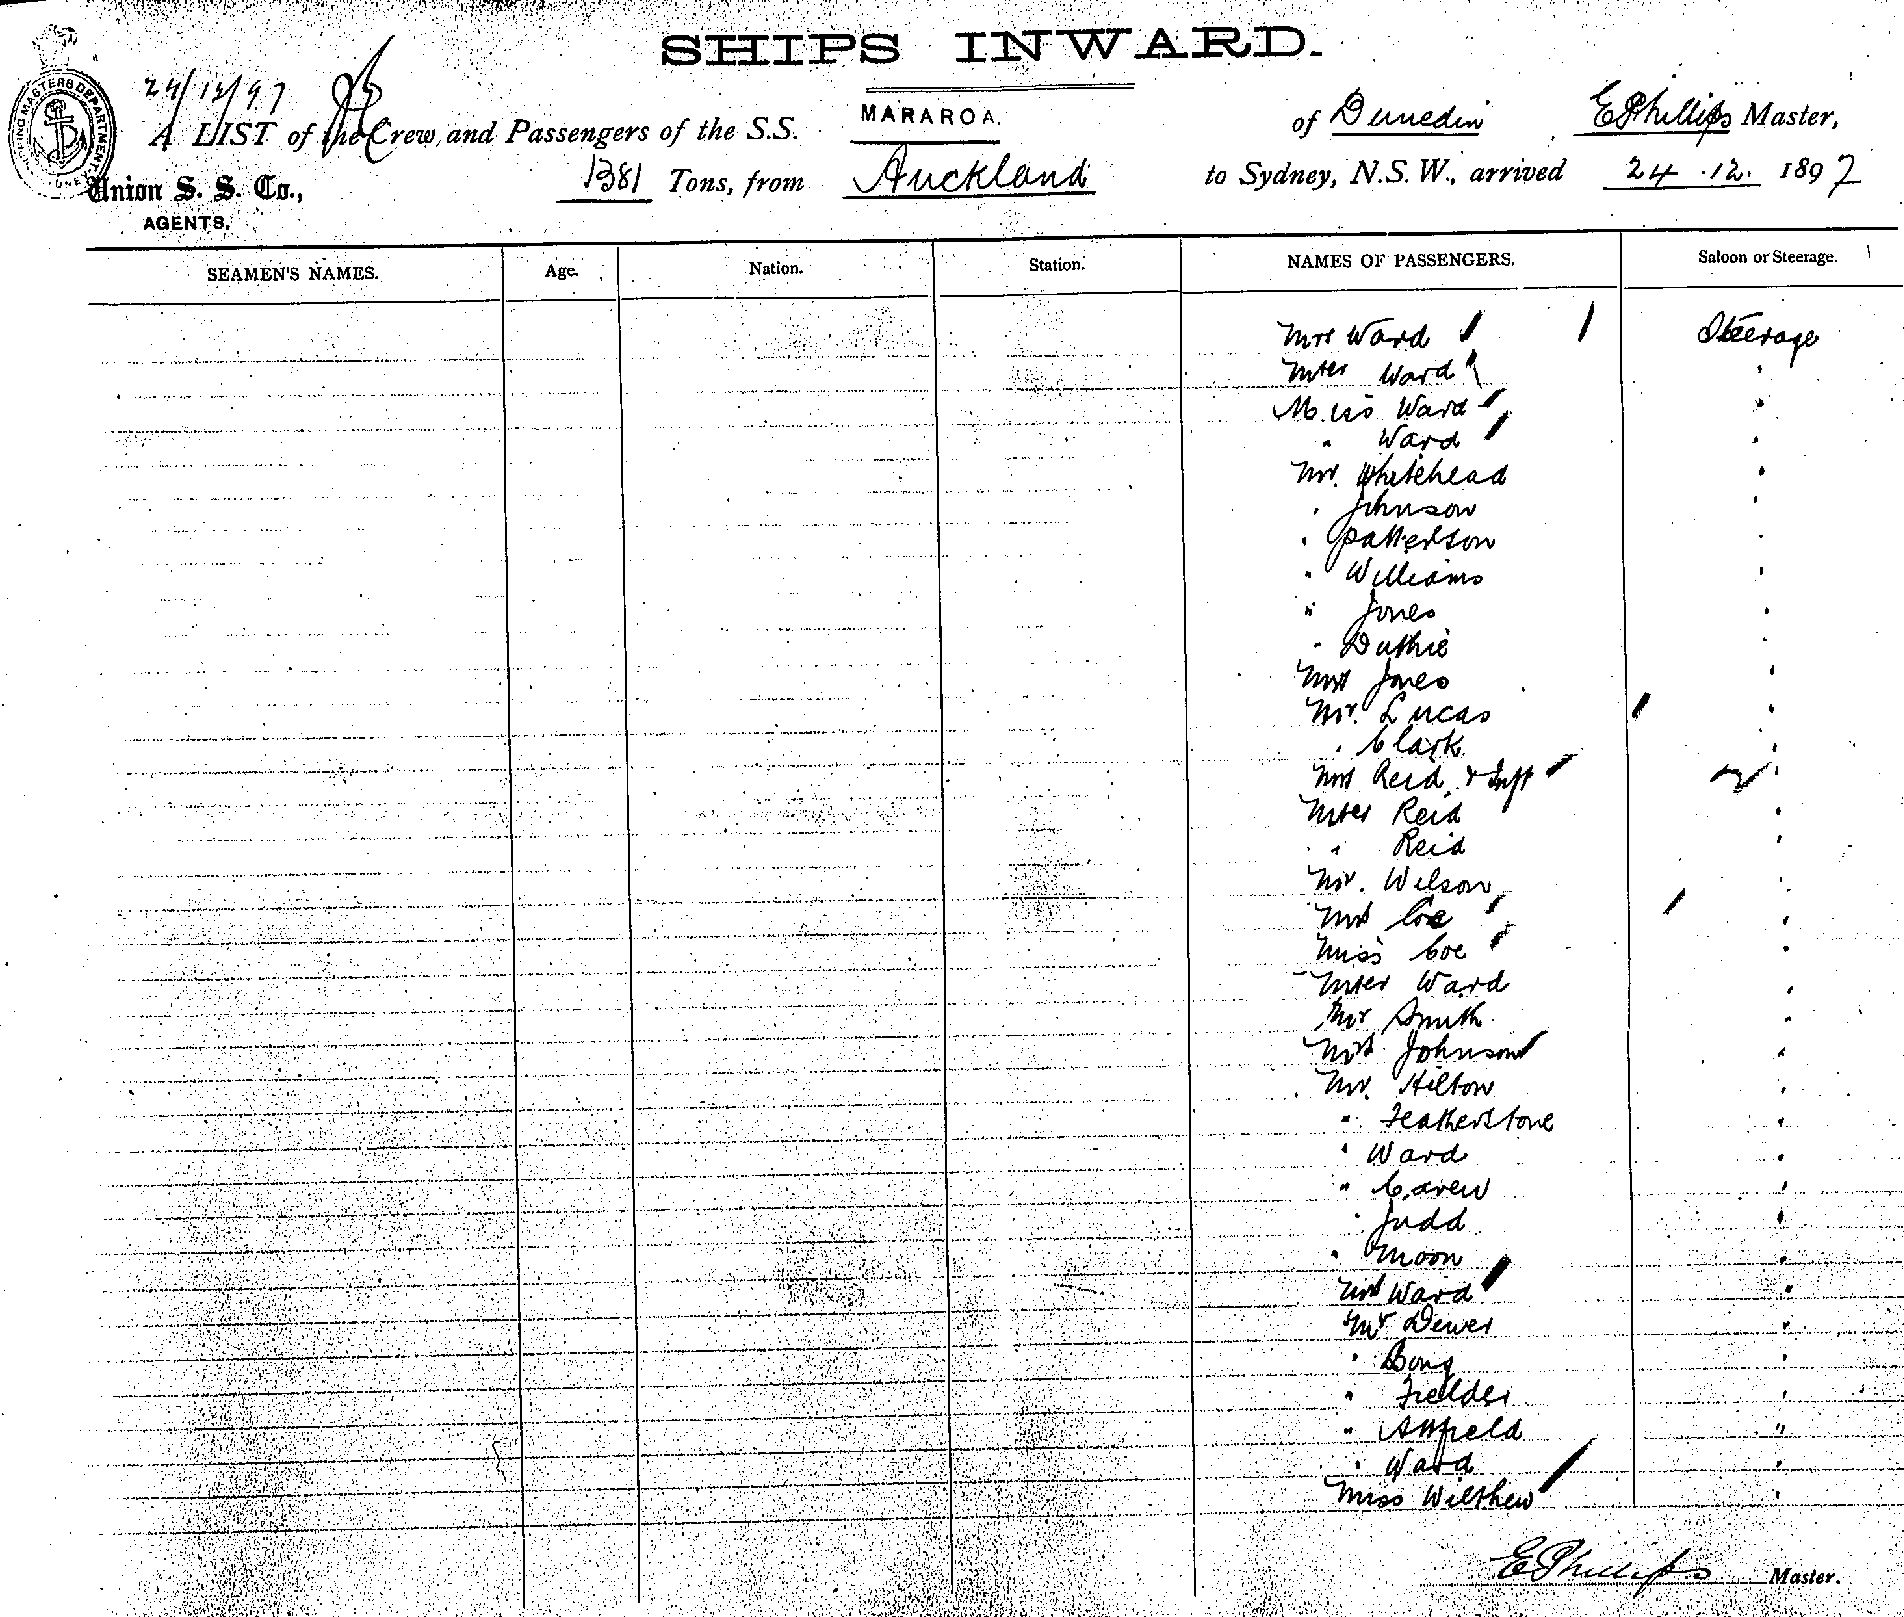 SHIPS INWARD.
24/12/97
A LIST of the Crew and Passengers of the S.S. MARAROA. of Dunedin E Phillips Master,
Union S. S. Co., 1381 Tons, from Auckland to Sydney, N.S.W., arrived 24.12.1897
AGENTS.
SEAMEN'S NAMES. Age. Nation. Station. NAMES OF PASSENGERS. Saloon or Steerage.
Mrs Ward Steerage
Mster Ward "
Miss Ward "
" Ward "
Mr. Whitehead "
" Johnson "
" Patterson "
" Williams "
" Jones "
" Duthie "
Mrs Jones "
Mr. Lucas "
" Clark "
Mrs Reid & Inft "
Mster Reid "
" Reid "
Mr. Wilson "
Mrs Coe "
Miss Coe "
Mster Ward "
Mr Smith "
Mrs Johnson "
Mr. Hilton "
" Featherstone "
" Ward "
" Carew "
" Judd "
" Moon "
Mrs Ward "
Mr Dewer "
" Bong "
" Fielder "
" Attfield "
" Ward "
Miss Wilthew "
E Phillips Master.